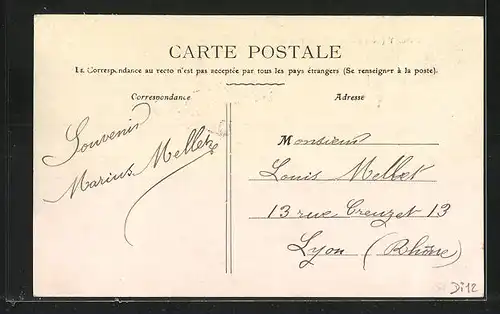 CARTE POSTALE
La Correspondance au recto n'est pas acceptée par tous les pays étrangers (Se renseigner à la poste).
Correspondance
Adresse
Souvenir
Marius Mellet
Monsieur
Louis Mellet
13 rue Creuzet 13
Lyon (Rhône)
Di12